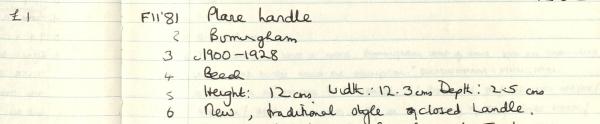 £1 F11'81 Plane handle
2 Birmingham
3 c1900-1928
4 Beech
5 Height: 12 cms Width: 12.3 cms Depth: 2.5 cms
6 New, traditional style closed handle.